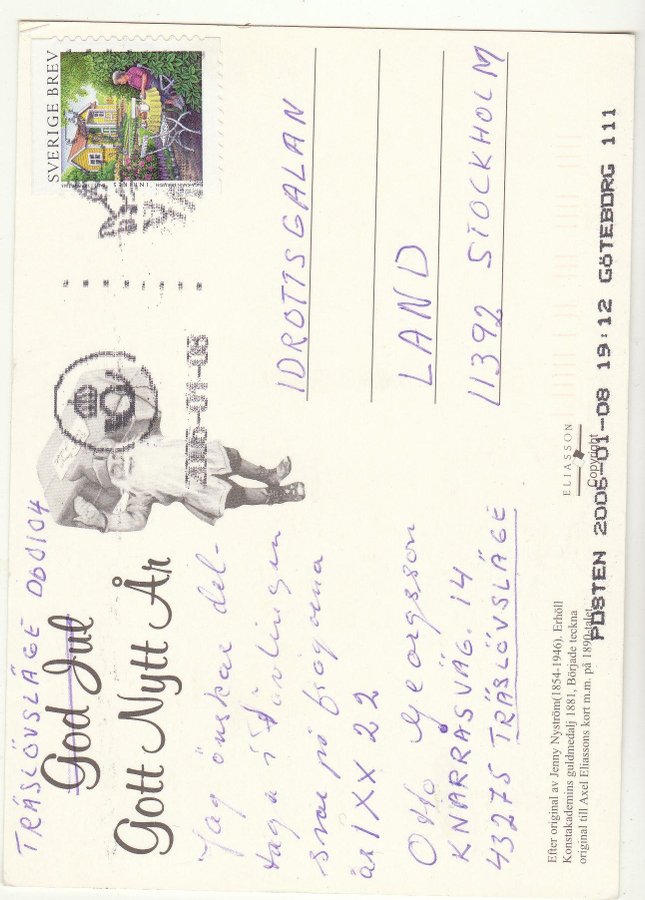 TRÄSLÖVSLÄGE 060104
God Jul
Gott Nytt År
Jag önskar del-
taga i tävlingen
svar på frågorna
är 1XX22
Otto Georgsson
KNARRASVÄG. 14
43275 TRÄSLÖVSLÄGE
Efter original av Jenny Nyström(1854-1946). Erhöll
Konstakademins guldmedalj 1881, Började teckna
original till Axel Eliassons kort m.m. på 1890-talet.
SVERIGE BREV
IDROTTSGALAN
LAND
11392 STOCKHOLM
ELIASSON
Copyright
POSTEN 2006-01-08 19:12 GÖTEBORG 111